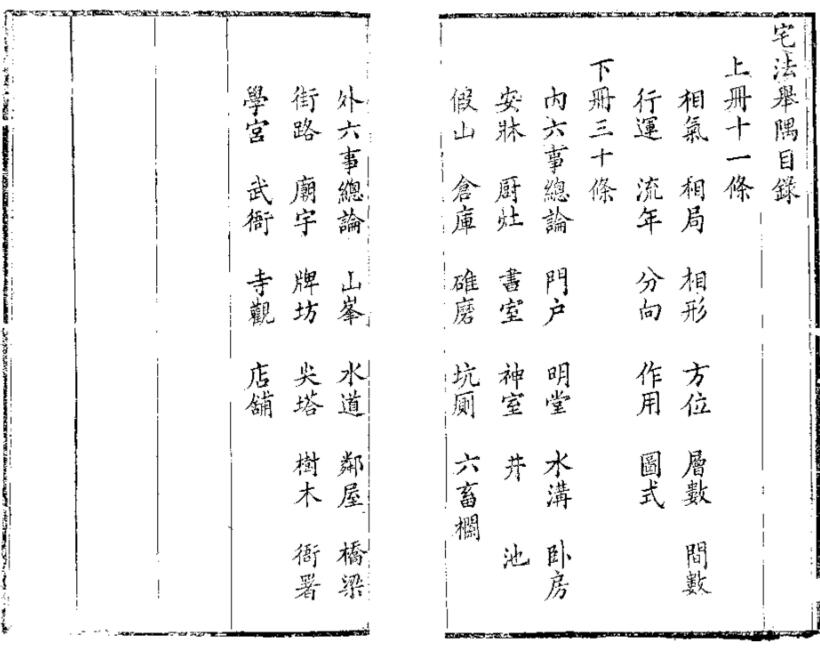 宅法舉隅目錄
上冊十一條
相氣 相局 相形 方位 層數 間數
行運 流年 分向 作用 圖式
下冊三十條
內六事總論 門户 明堂 水溝 卧房
安牀 厨灶 書室 神室 井 池
假山 倉庫 碓磨 坑厠 六畜欄
外六事總論 山峯 水道 鄰屋 橋梁
街路 廟宇 牌坊 尖塔 樹木 衙署
學宮 武衙 寺觀 店舖